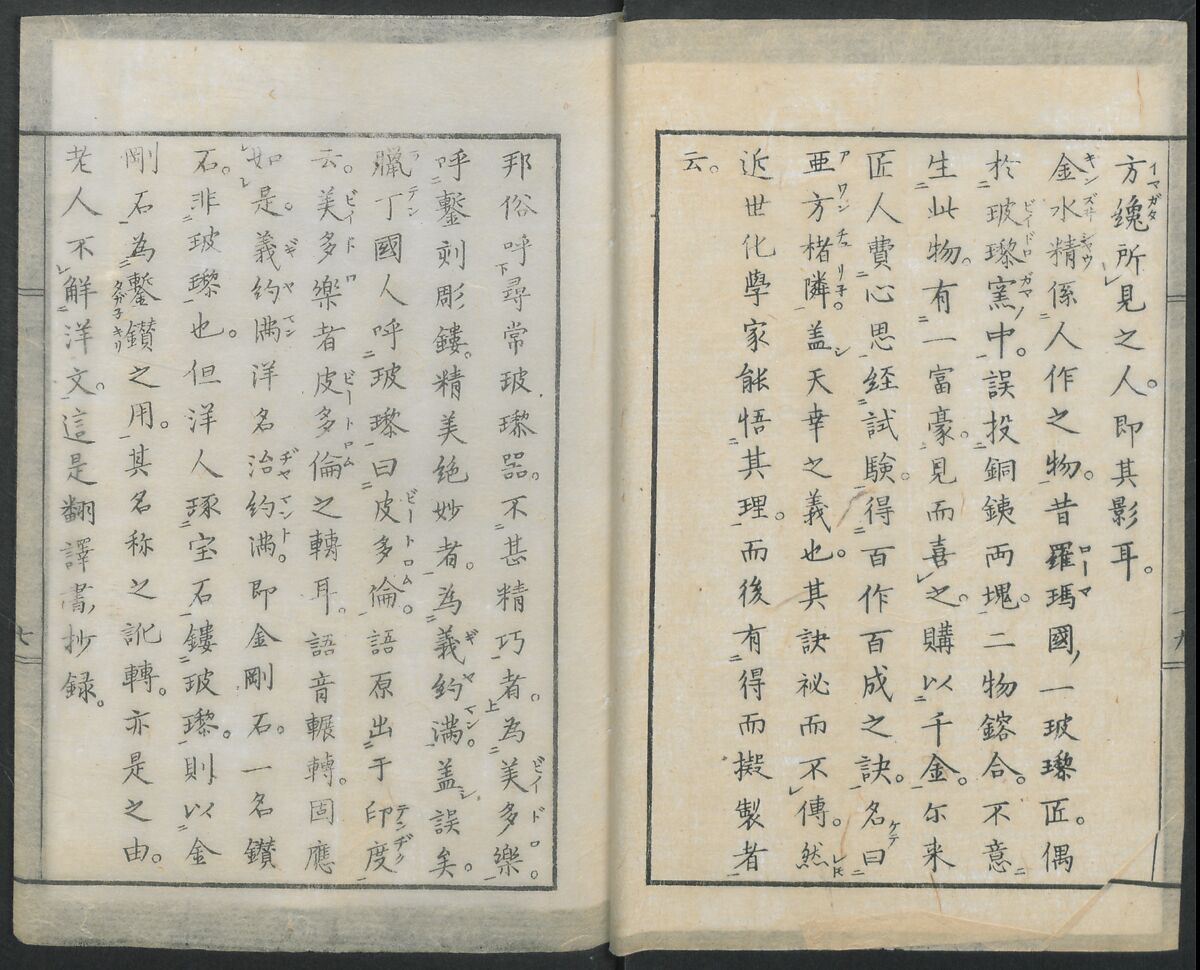 方纔所見之人。即其影耳。
金水精係人作之物。昔羅瑪國ノ一玻瓈匠。偶
於玻瓈窯ノ中。誤投銅銕両塊。二物鎔合。不意
生此物。有一富豪。見而喜之。購以千金。尓来
匠人費心思経試験。得百作百成之訣。名曰
亜方楮隣。盖天幸之義也。其訣祕而不傳。然
近世化學家能悟其理。而後有得而擬製者
云。
邦俗呼尋常玻瓈器。不甚精巧者。為美多樂。
呼鏨刻彫鏤。精美絶妙者。為義約満。盖誤矣。
臘丁國人呼玻瓈曰皮多倫。語原出于印度
云。美多樂者皮多倫之轉耳。語音輾轉。固應
如是。義約満洋名治約満。即金剛石。一名鑚
石。非玻瓈也。但洋人琢宝石鏤玻瓈。則以金
剛石為鏨鑚之用。其名称之訛轉。亦是之由。
老人不解洋文。這是翻譯書ノ抄録。
七